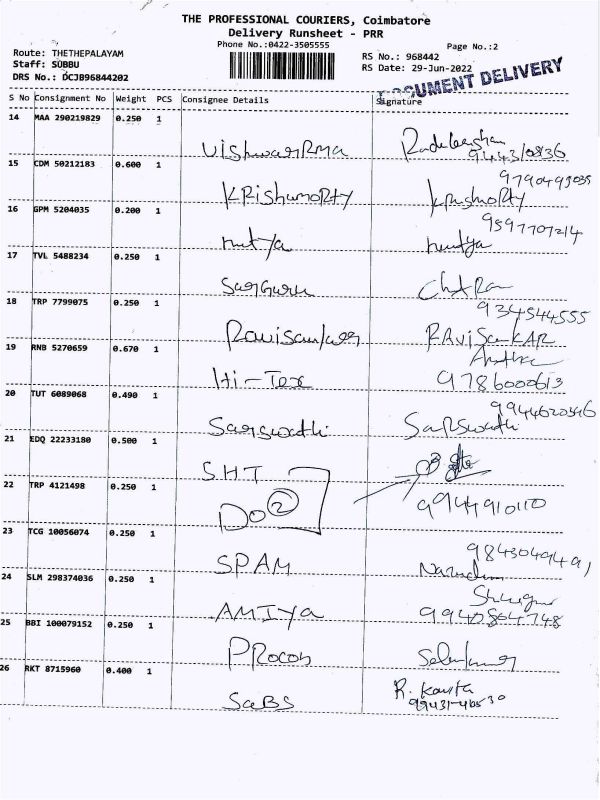 THE PROFESSIONAL COURIERS, Coimbatore
Delivery Runsheet - PRR
Phone No.:0422-3505555
Page No.:2
Route: THETHEPALAYAM
RS No.: 968442
Staff: SUBBU
RS Date: 29-Jun-2022
DRS No.: DCJB96844202
DOCUMENT DELIVERY
S No Consignment No Weight PCS Consignee Details Signature
14 MAA 290219829 0.250 1
Vishwarma
15 CDM 50212183 0.600 1
9790499035
KRishmoRty
16 GPM 5204035 0.200 1
9597707214
nutya nutya
17 TVL 5488234 0.250 1
SarGuru ChitRa
18 TRP 7799075 0.250 1
934544555
Ravisankar RAviSanKAR
19 RNB 5270659 0.670 1
Hi-Tex 9786000613
20 TUT 6089068 0.490 1
9944620346
Sarswathi SaRSwathi
21 EDQ 22233180 0.500 1
SHT
22 TRP 4121498 0.250 1
DO 2 9944910110
23 TCG 10056074 0.250 1
9843049491
SPAM
24 SLM 298374036 0.250 1
AMIYA 9940864748
25 BBI 100079152 0.250 1
PRocon
26 RKT 8715960 0.400 1
R. Kavita
SaBS